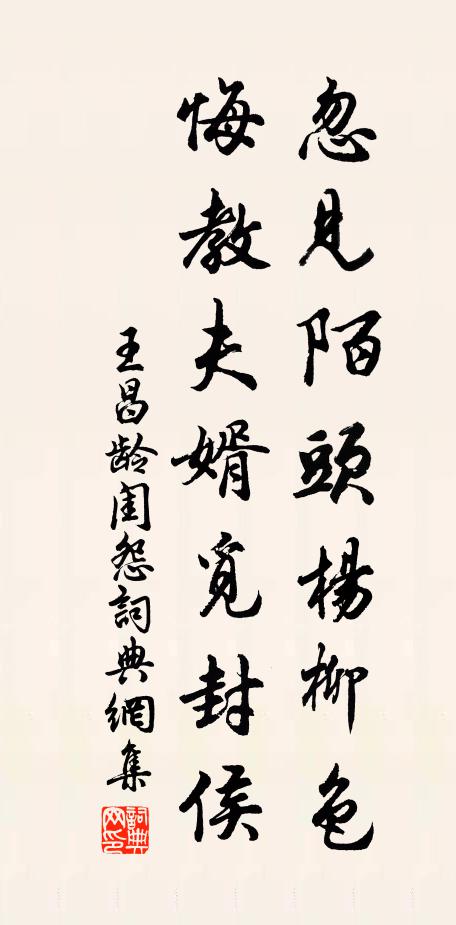 忽見陌頭楊柳色
悔教夫婿覓封侯
王昌龄閨怨詞典網集
詞典網印